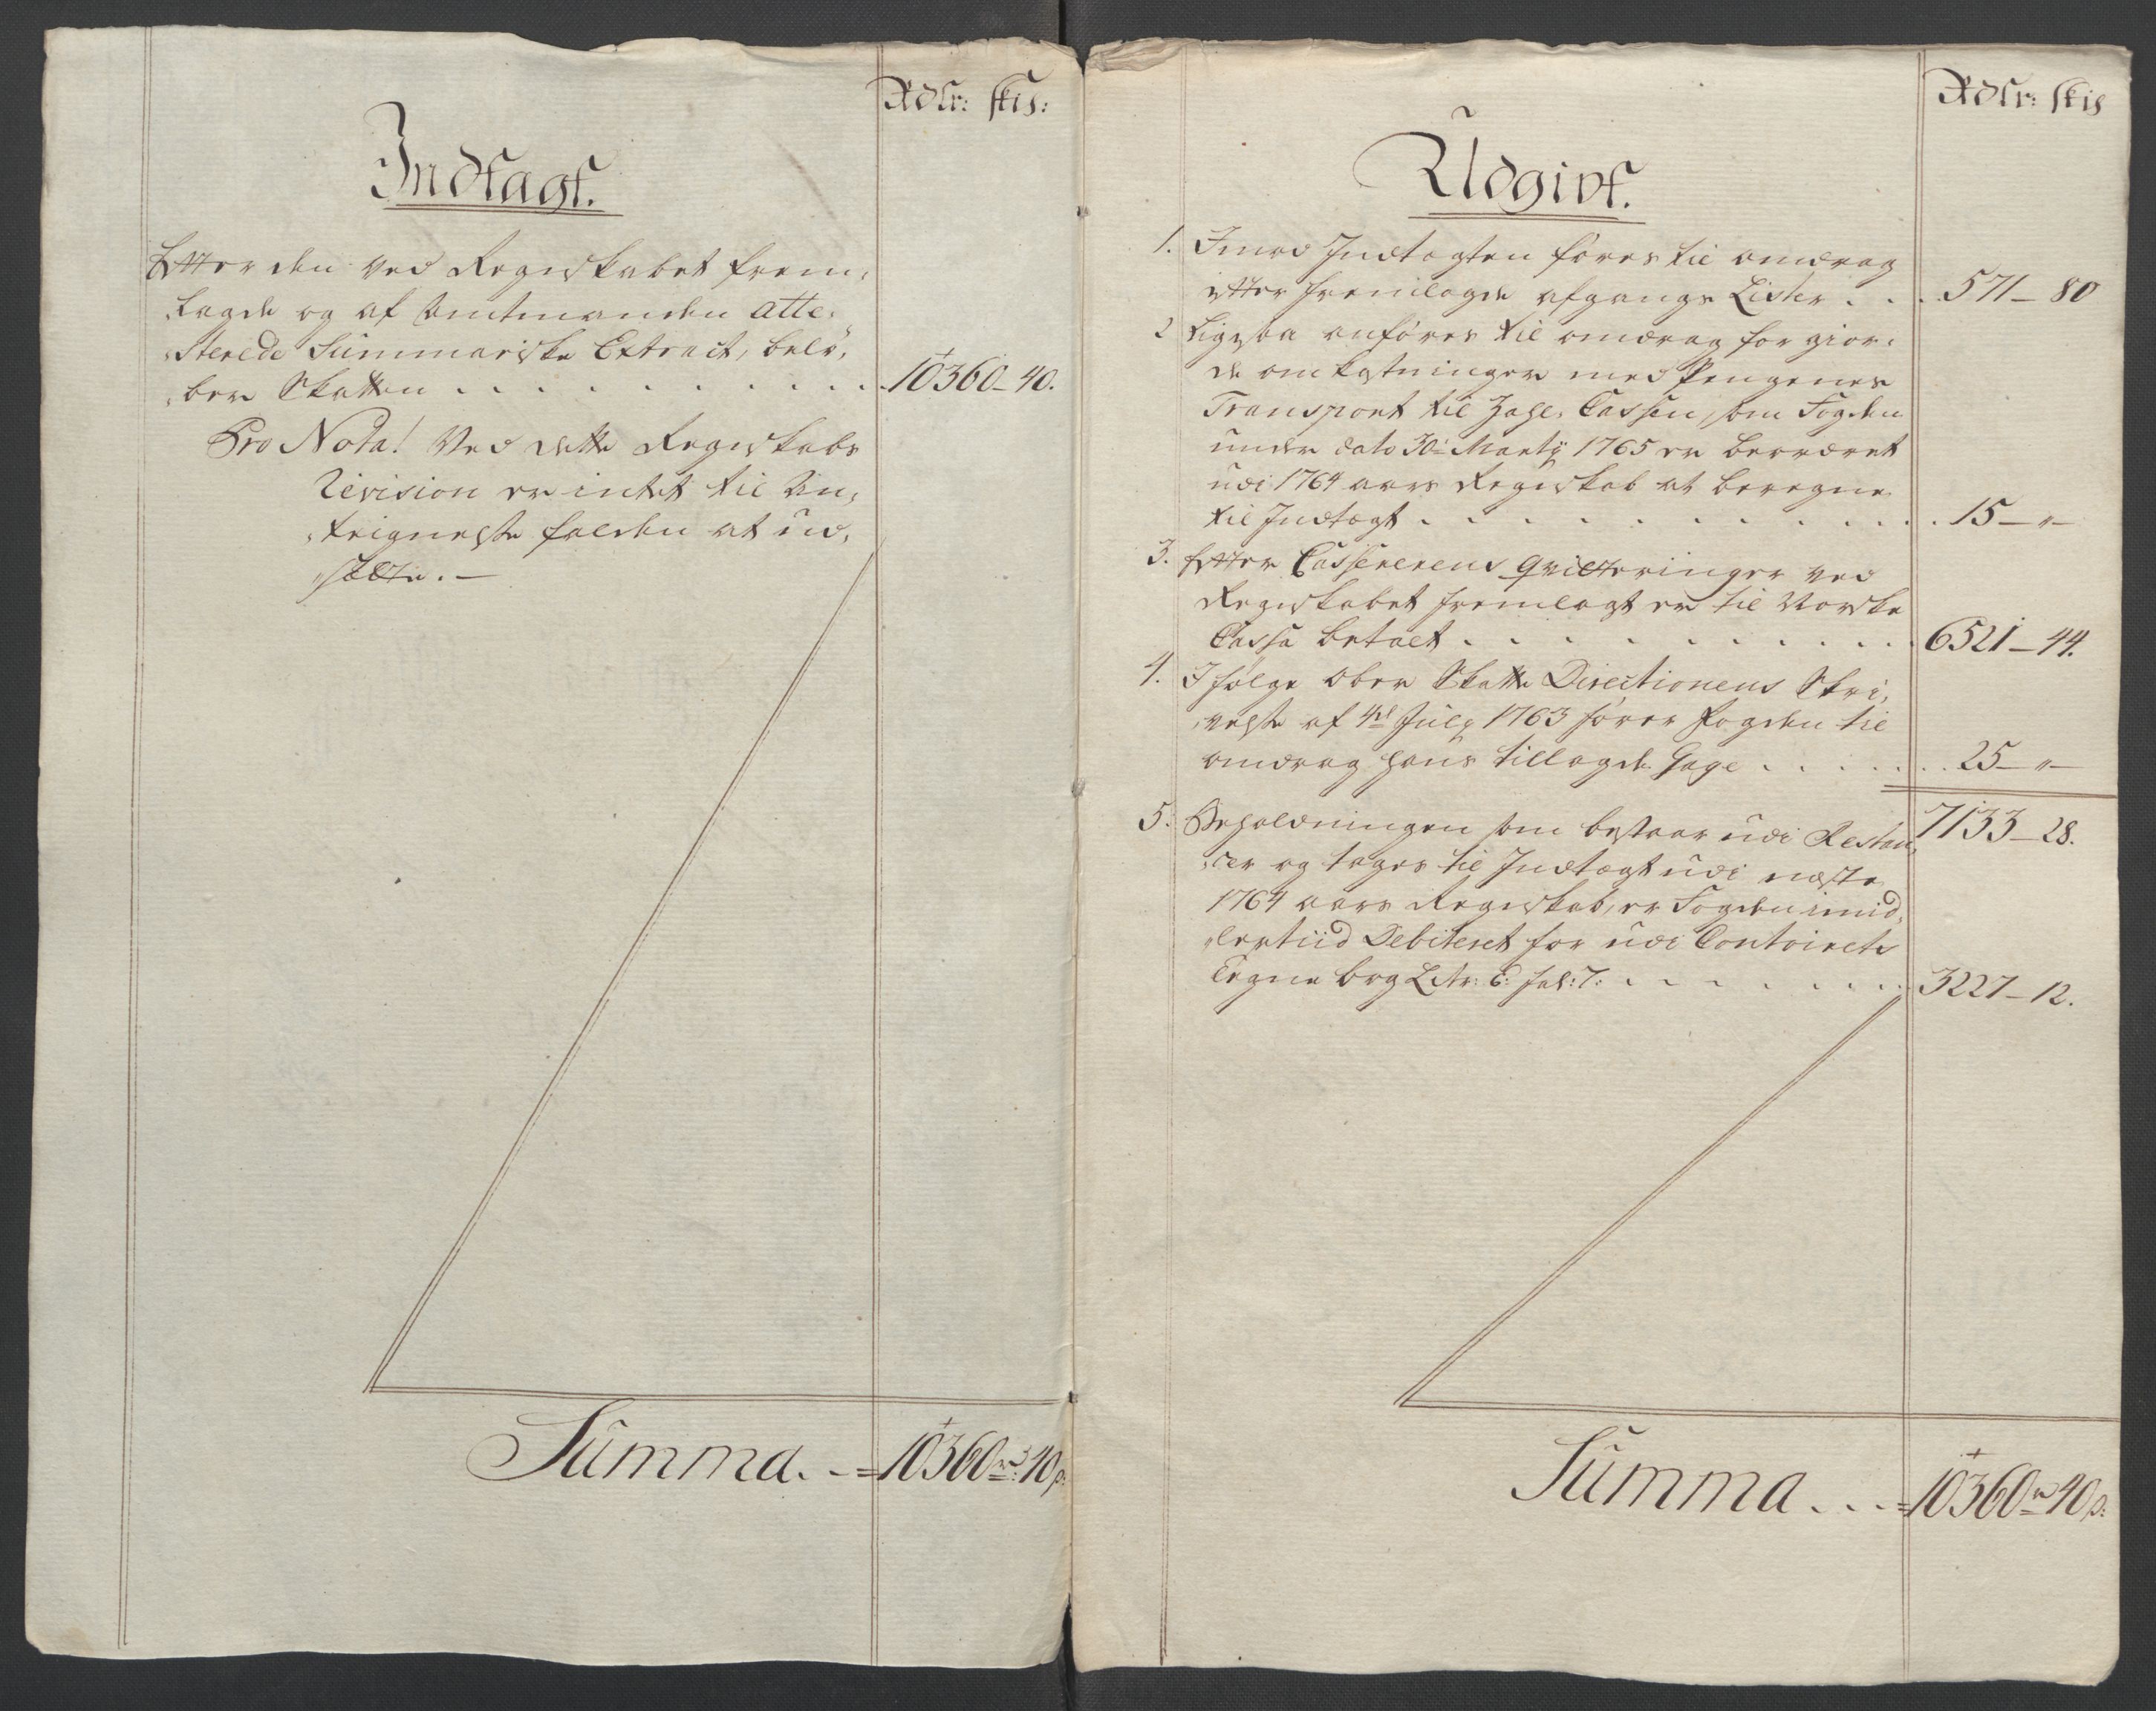 Rdlr: skis:
Indtagt.
Efter den ved Regnskabet frem,
lagde og af Amtmanden atte,
sterede Summariske Extract, belø,
ber Skatten . . . . . . . . . . 10360 - 40.
Pro Nota! Ved dette Regnskabs
Revision er intet til An,
teignelse falden at ud,
sætte. —
Summa. - = 10360 rd: 40 s:
Rdlr: skis
Udgivt.
1. Imod Indtagten føres til afdrag
efter fremlagde afgangs Lister . . . 571 - 80
2 Ligesaa anføres til afdrag for gior,
de omkostninger med Pengenes
Transport til Zahl-Cassen, som Fogden
under dato 30te Martij 1765 er beordret
udi 1764 aars Regnskab at beregne
til Indtægt . . . . . . . . . . . 15 - "-
3. Efter Cassererens Qvitteringer ved
Regnskabet fremlagt er til Norske
Cassa betalt . . . . . . . . . . 6521 - 44.
4. I følge Ober Skatte Directionens Skri,
velse af 4de Julij 1763 fører Fogden til
afdrag hans tillagde Gage . . . . . . 25 - "-
7133 - 28.
5. Beholdningen som bestaar udi Restan,
cer og tages til Indtægt udi næste
1764 aars Regnskab, er Fogden imid,
lertiid Debiteret for udi Contoirets
Tegne bog Litr: C: fol: 7: . . . . . . . 3227 - 12.
Summa . . . = 10360 rd 40 s: